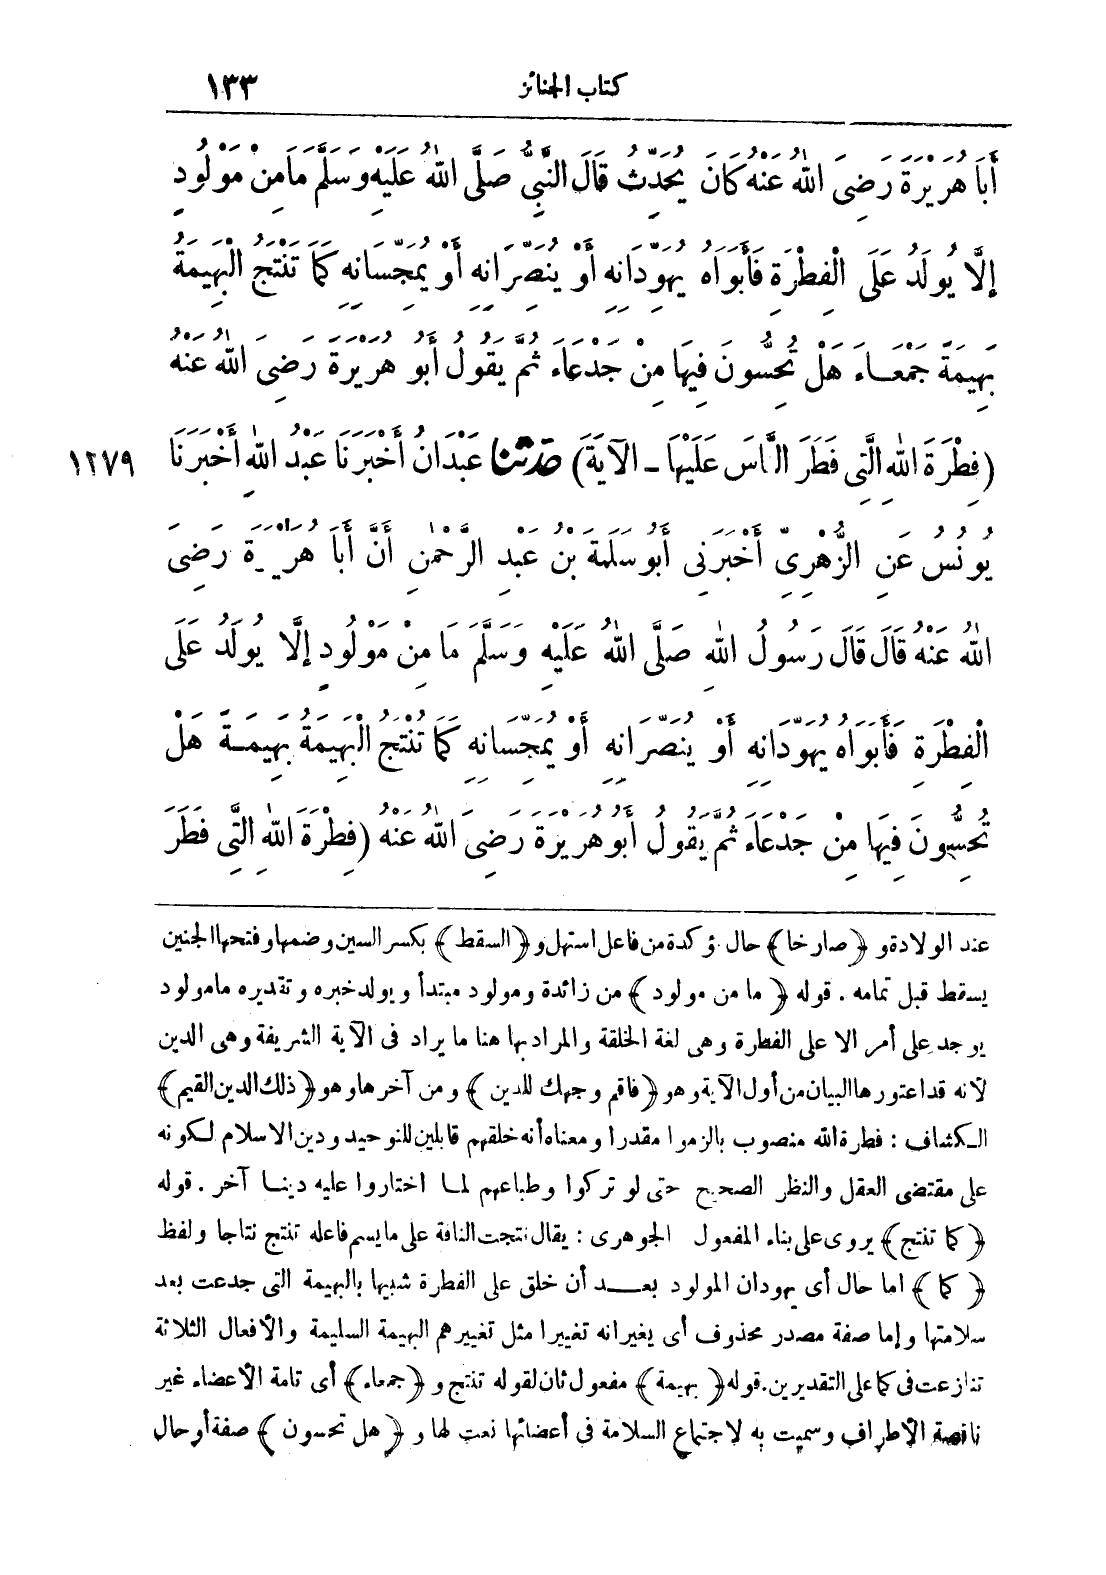 كتاب الجنائز ١٣٣
أَبَا هُرَيْرَةَ رَضِىَ اللّٰهُ عَنْهُ كَانَ يُحَدِّثُ قَالَ النَّبِىُّ صَلَّى اللّٰهُ عَلَيْهِ وَسَلَّمَ مَا مِنْ مَوْلُودٍ
إِلَّا يُولَدُ عَلَى الْفِطْرَةِ فَأَبَوَاهُ يُهَوِّدَانِهِ أَوْ يُنَصِّرَانِهِ أَوْ يُمَجِّسَانِهِ كَمَا تُنْتَجُ الْبَهِيمَةُ
بَهِيمَةً جَمْعَاءَ هَلْ تُحِسُّونَ فِيهَا مِنْ جَدْعَاءَ ثُمَّ يَقُولُ أَبُو هُرَيْرَةَ رَضِىَ اللّٰهُ عَنْهُ
(فِطْرَةَ اللّٰهِ الَّتِى فَطَرَ النَّاسَ عَلَيْهَا - الآيَةَ) حَدَّثَنَا عَبْدَانُ أَخْبَرَنَا عَبْدُ اللّٰهِ أَخْبَرَنَا ١٢٧٩
يُونُسُ عَنِ الزُّهْرِىِّ أَخْبَرَنِى أَبُو سَلَمَةَ بْنُ عَبْدِ الرَّحْمٰنِ أَنَّ أَبَا هُرَيْرَةَ رَضِىَ
اللّٰهُ عَنْهُ قَالَ قَالَ رَسُولُ اللّٰهِ صَلَّى اللّٰهُ عَلَيْهِ وَسَلَّمَ مَا مِنْ مَوْلُودٍ إِلَّا يُولَدُ عَلَى
الْفِطْرَةِ فَأَبَوَاهُ يُهَوِّدَانِهِ أَوْ يُنَصِّرَانِهِ أَوْ يُمَجِّسَانِهِ كَمَا تُنْتَجُ الْبَهِيمَةُ بَهِيمَةً هَلْ
تُحِسُّونَ فِيهَا مِنْ جَدْعَاءَ ثُمَّ يَقُولُ أَبُو هُرَيْرَةَ رَضِىَ اللّٰهُ عَنْهُ (فِطْرَةَ اللّٰهِ الَّتِى فَطَرَ
عند الولادة و ﴿صارخا﴾ حال مؤكدة من فاعل استهل و ﴿السقط﴾ بكسر السين وضمها وفتحها الجنين
يسقط قبل تمامه . قوله ﴿ما من مولود﴾ من زائدة ومولود مبتدأ ويولد خبره وتقديره ما مولود
يوجد على أمر الا على الفطرة وهى لغة الخلقة والمراد بها هنا ما يراد فى الآية الشريفة وهى الدين
لأنه قد اعتورها البيان من أول الآية وهو ﴿فاقم وجهك للدين﴾ ومن آخرها وهو ﴿ذلك الدين القيم﴾
الكشاف : فطرة الله منصوب بالزموا مقدرا ومعناه أنه خلقهم قابلين للتوحيد ودين الاسلام لكونه
على مقتضى العقل والنظر الصحيح حتى لو تركوا وطباعهم لما اختاروا عليه دينا آخر . قوله
﴿كما تنتج﴾ يروى على بناء المفعول الجوهرى : يقال نتجت الناقة على ما يسم فاعله تنتج نتاجا ولفظ
﴿كما﴾ اما حال أى يهودان المولود بعد أن خلق على الفطرة شبيها بالبهيمة التى جدعت بعد
سلامتها وإما صفة مصدر محذوف أى يغيرانه تغييرا مثل تغييرهم البهيمة السليمة والأفعال الثلاثة
تنازعت فى كما على التقديرين . قوله ﴿بهيمة﴾ مفعول ثان لقوله تنتج و ﴿جمعاء﴾ أى تامة الأعضاء غير
ناقصة الأطراف وسميت به لاجتماع السلامة فى أعضائها نعت لها و ﴿هل تحسون﴾ صفة أو حال